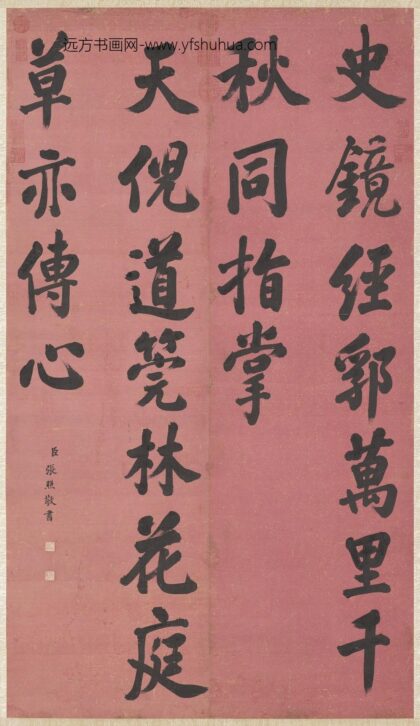 远方书画网-www.yfshuhua.com
史鏡經郛萬里千
秋同指掌
天倪道筦林花庭
草亦傳心
臣張照敬書